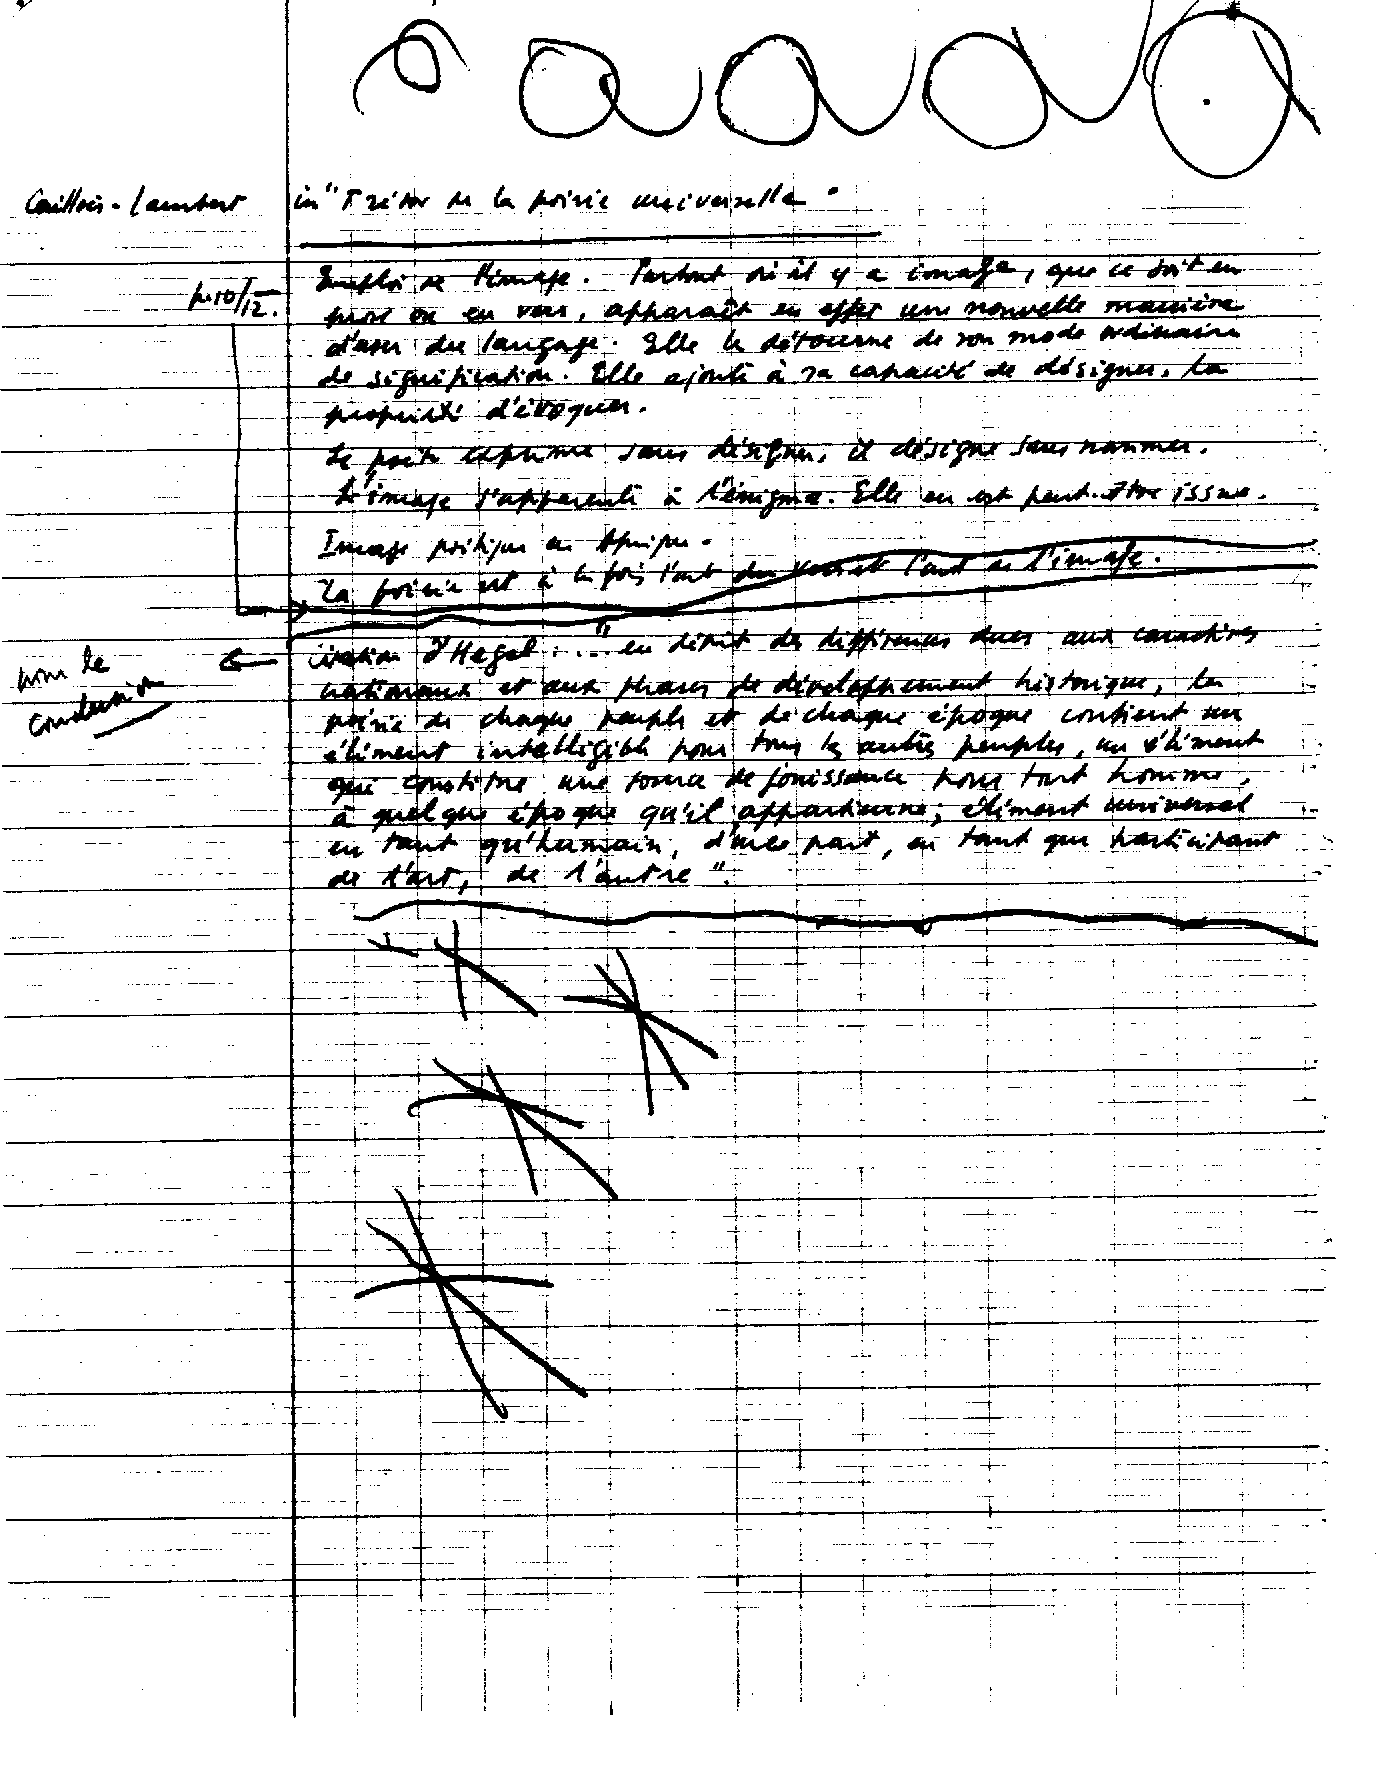 Caillois - Lambert in "Trésor de la poésie universelle"
p. 10/12.
Emploi de l'image. Partout où il y a image, que ce soit en
prose ou en vers, apparaît en effet une nouvelle manière
d'user du langage. Elle le détourne de son mode ordinaire
de signification. Elle ajoute à sa capacité de désigner, la
propriété d'évoquer.
Le poète exprime sans désigner, il désigne sans nommer.
L'image s'apparente à l'énigme. Elle en est peut-être issue.
Image poétique en Afrique.
La poésie est à la fois l'art du vers et l'art de l'image.
pour la
conclusion
citation d'Hegel : "... en dépit des différences dues aux caractères
nationaux et aux phases de développement historique, la
poésie de chaque peuple et de chaque époque contient un
élément intelligible pour tous les autres peuples, un élément
qui constitue une source de jouissance pour tout homme,
à quelque époque qu'il appartienne; élément universel
en tant qu'humain, d'une part, en tant que participant
de l'art, de l'autre".